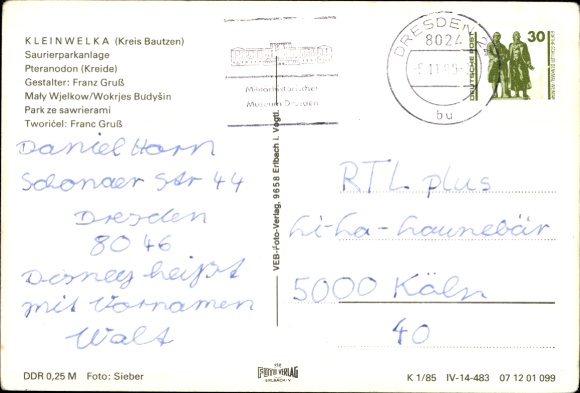 KLEINWELKA (Kreis Bautzen)
Saurierparkanlage
Pteranodon (Kreide)
Gestalter: Franz Gruß
Mały Wjelkow/Wokrjes Budyšin
Park ze sawrierami
Tworićel: Franc Gruß
Daniel Horn
Schonaer Str 44
Dresden
8046
Disney heißt
mit Vornamen
Walt
DDR 0,25 M Foto: Sieber
Militärhistorisches
Museum Dresden
VEB-Foto-Verlag, 9658 Erlbach i. Vogtl.
FOTO VERLAG
ERLBACH/V
DRESDEN 24
8024
bu
DEUTSCHE POST
30
RTL plus
hi-ha-haunebär
5000 Köln
40
K 1/85 IV-14-483 07 12 01 099